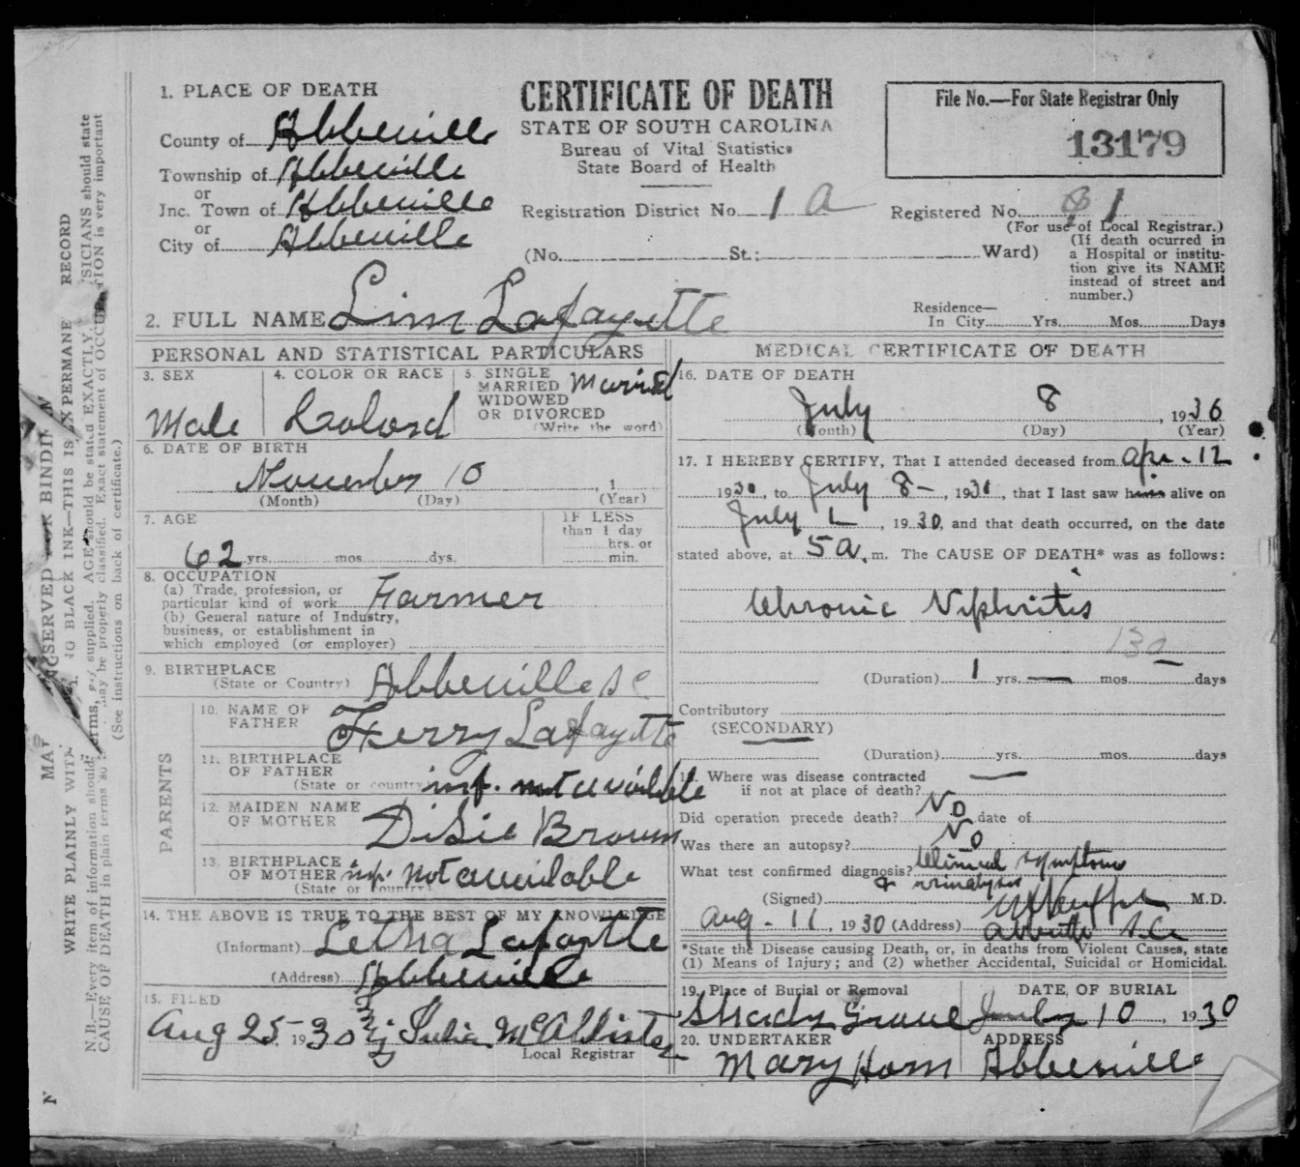 1. PLACE OF DEATH
County of Abbeville
Township of Abbeville
or
Inc. Town of Abbeville
or
City of Abbeville
CERTIFICATE OF DEATH
STATE OF SOUTH CAROLINA
Bureau of Vital Statistics
State Board of Health
Registration District No. 1 a
(No. St.; Ward)
File No.—For State Registrar Only
13179
Registered No. 81
(For use of Local Registrar.)
(If death ocurred in
a Hospital or institu-
tion give its NAME
instead of street and
number.)
2. FULL NAME Lim Lafayette
Residence—
In City Yrs. Mos. Days
PERSONAL AND STATISTICAL PARTICULARS
3. SEX
Male
4. COLOR OR RACE
Colord
5. SINGLE
MARRIED
WIDOWED
OR DIVORCED
Married
(Write the word)
6. DATE OF BIRTH
November 10 , 1
(Month) (Day) (Year)
7. AGE
62 yrs. mos. dys.
IF LESS
than 1 day
hrs. or
min.
8. OCCUPATION
(a) Trade, profession, or
particular kind of work Farmer
(b) General nature of Industry,
business, or establishment in
which employed (or employer)
9. BIRTHPLACE
(State or Country) Abbeville SC
PARENTS
10. NAME OF
FATHER Ferry Lafayette
11. BIRTHPLACE
OF FATHER
(State or country) inf. not available
12. MAIDEN NAME
OF MOTHER Disie Brown
13. BIRTHPLACE
OF MOTHER inf. not available
(State or country)
14. THE ABOVE IS TRUE TO THE BEST OF MY KNOWLEDGE
(Informant) Letha Lafayette
(Address) Abbeville
15. FILED
Aug 25 1930 Julia McAllister
Local Registrar
MEDICAL CERTIFICATE OF DEATH
16. DATE OF DEATH
July 8 , 1936
(Month) (Day) (Year)
17. I HEREBY CERTIFY, That I attended deceased from Apr. 12
1930, to July 8 , 1930, that I last saw him alive on
July 1 , 1930, and that death occurred, on the date
stated above, at 5 a. m. The CAUSE OF DEATH* was as follows:
Chronic Nephritis
130
(Duration) 1 yrs. — mos. days
Contributory
(SECONDARY)
(Duration) yrs. mos. days
18. Where was disease contracted
if not at place of death? —
Did operation precede death? No date of
Was there an autopsy? No
What test confirmed diagnosis? Clinical symptoms
& urinalysis
(Signed) M.D.
Aug - 11 , 1930 (Address) Abbeville S.C.
*State the Disease causing Death, or, in deaths from Violent Causes, state
(1) Means of Injury; and (2) whether Accidental, Suicidal or Homicidal.
19. Place of Burial or Removal
Shady Grove
DATE OF BURIAL
July 10 , 1930
20. UNDERTAKER
Mary Horn
ADDRESS
Abbeville
WRITE PLAINLY WITH
TO BLACK INK—THIS IS A PERMANE RECORD
(See instructions on back of certificate.)